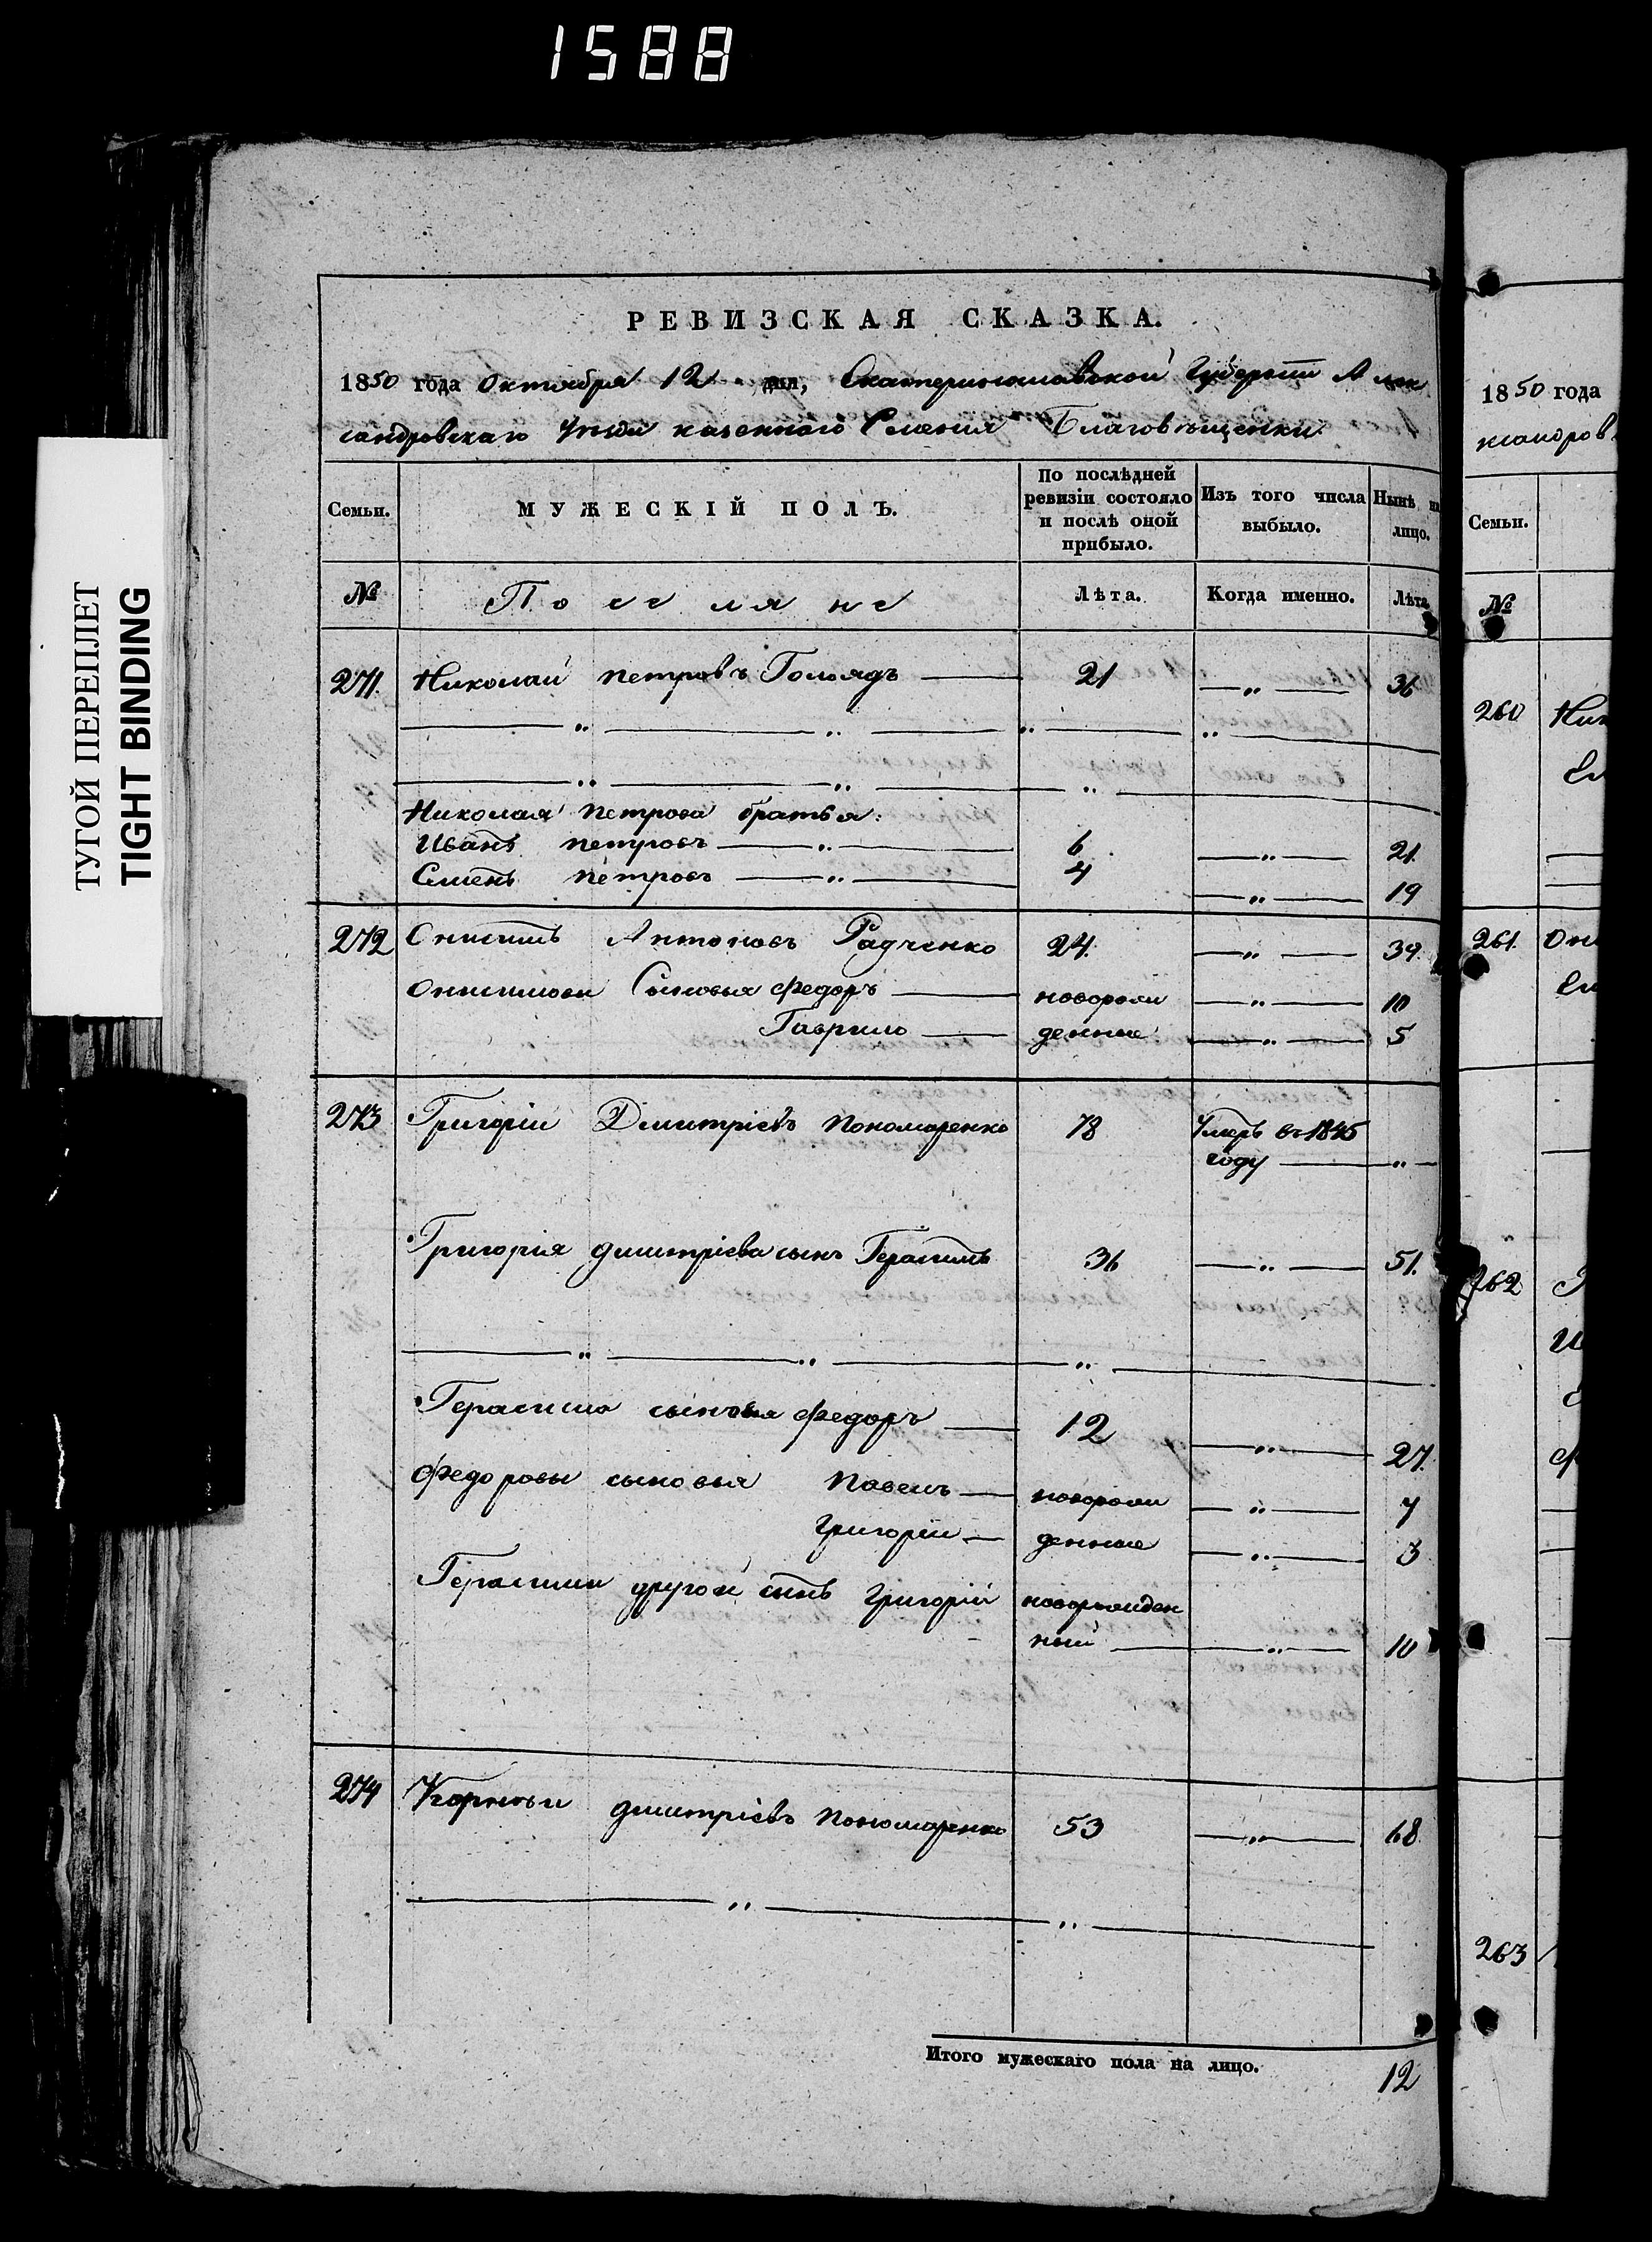 1588
ТУГОЙ ПЕРЕПЛЕТ
TIGHT BINDING
РЕВИЗСКАЯ СКАЗКА.
1850 года Октября 12 дня, Екатеринославской Губернии Алек
сандровскаго Уезда казеннаго Селения Благовѣщенки.
Семьи. МУЖЕСКІЙ ПОЛЪ. По послѣдней ревизіи состояло и послѣ оной прибыло. Изъ того числа выбыло. Нынѣ на лицо.
№ Поселяне Лѣта. Когда именно. Лѣта
271. Николай петровъ Голядъ 21 — „ — 36
Николая Петрова братья:
Иванъ петровъ — „ — 6 — „ — 21.
Семенъ петровъ — „ — 4 — „ — 19
272 Онисимъ Антоновъ Радченко 24. — „ — 39.
Онисимовы Сыновья Федоръ — новорож — „ — 10
Гаврило — денные — „ — 5
273 Григорій Дмитріевъ Пономаренко 78 Умеръ въ 1845
году — „ —
Григорія дмитріева сынъ Герасимъ 36 — „ — 51.
Герасима сыновья Федоръ — 12 — „ — 27.
Федоровы сыновья Павелъ — новорож — „ — 7
Григорій — денные — „ — 3
Герасима другой сынъ Григорій новорожден
ный — „ — 10
274 Корней дмитріевъ Пономаренко 53 — „ — 68
Итого мужескаго пола на лицо. 12
1850 года
ксандров
Семьи.
№
260 Ник
261. Они
262
263